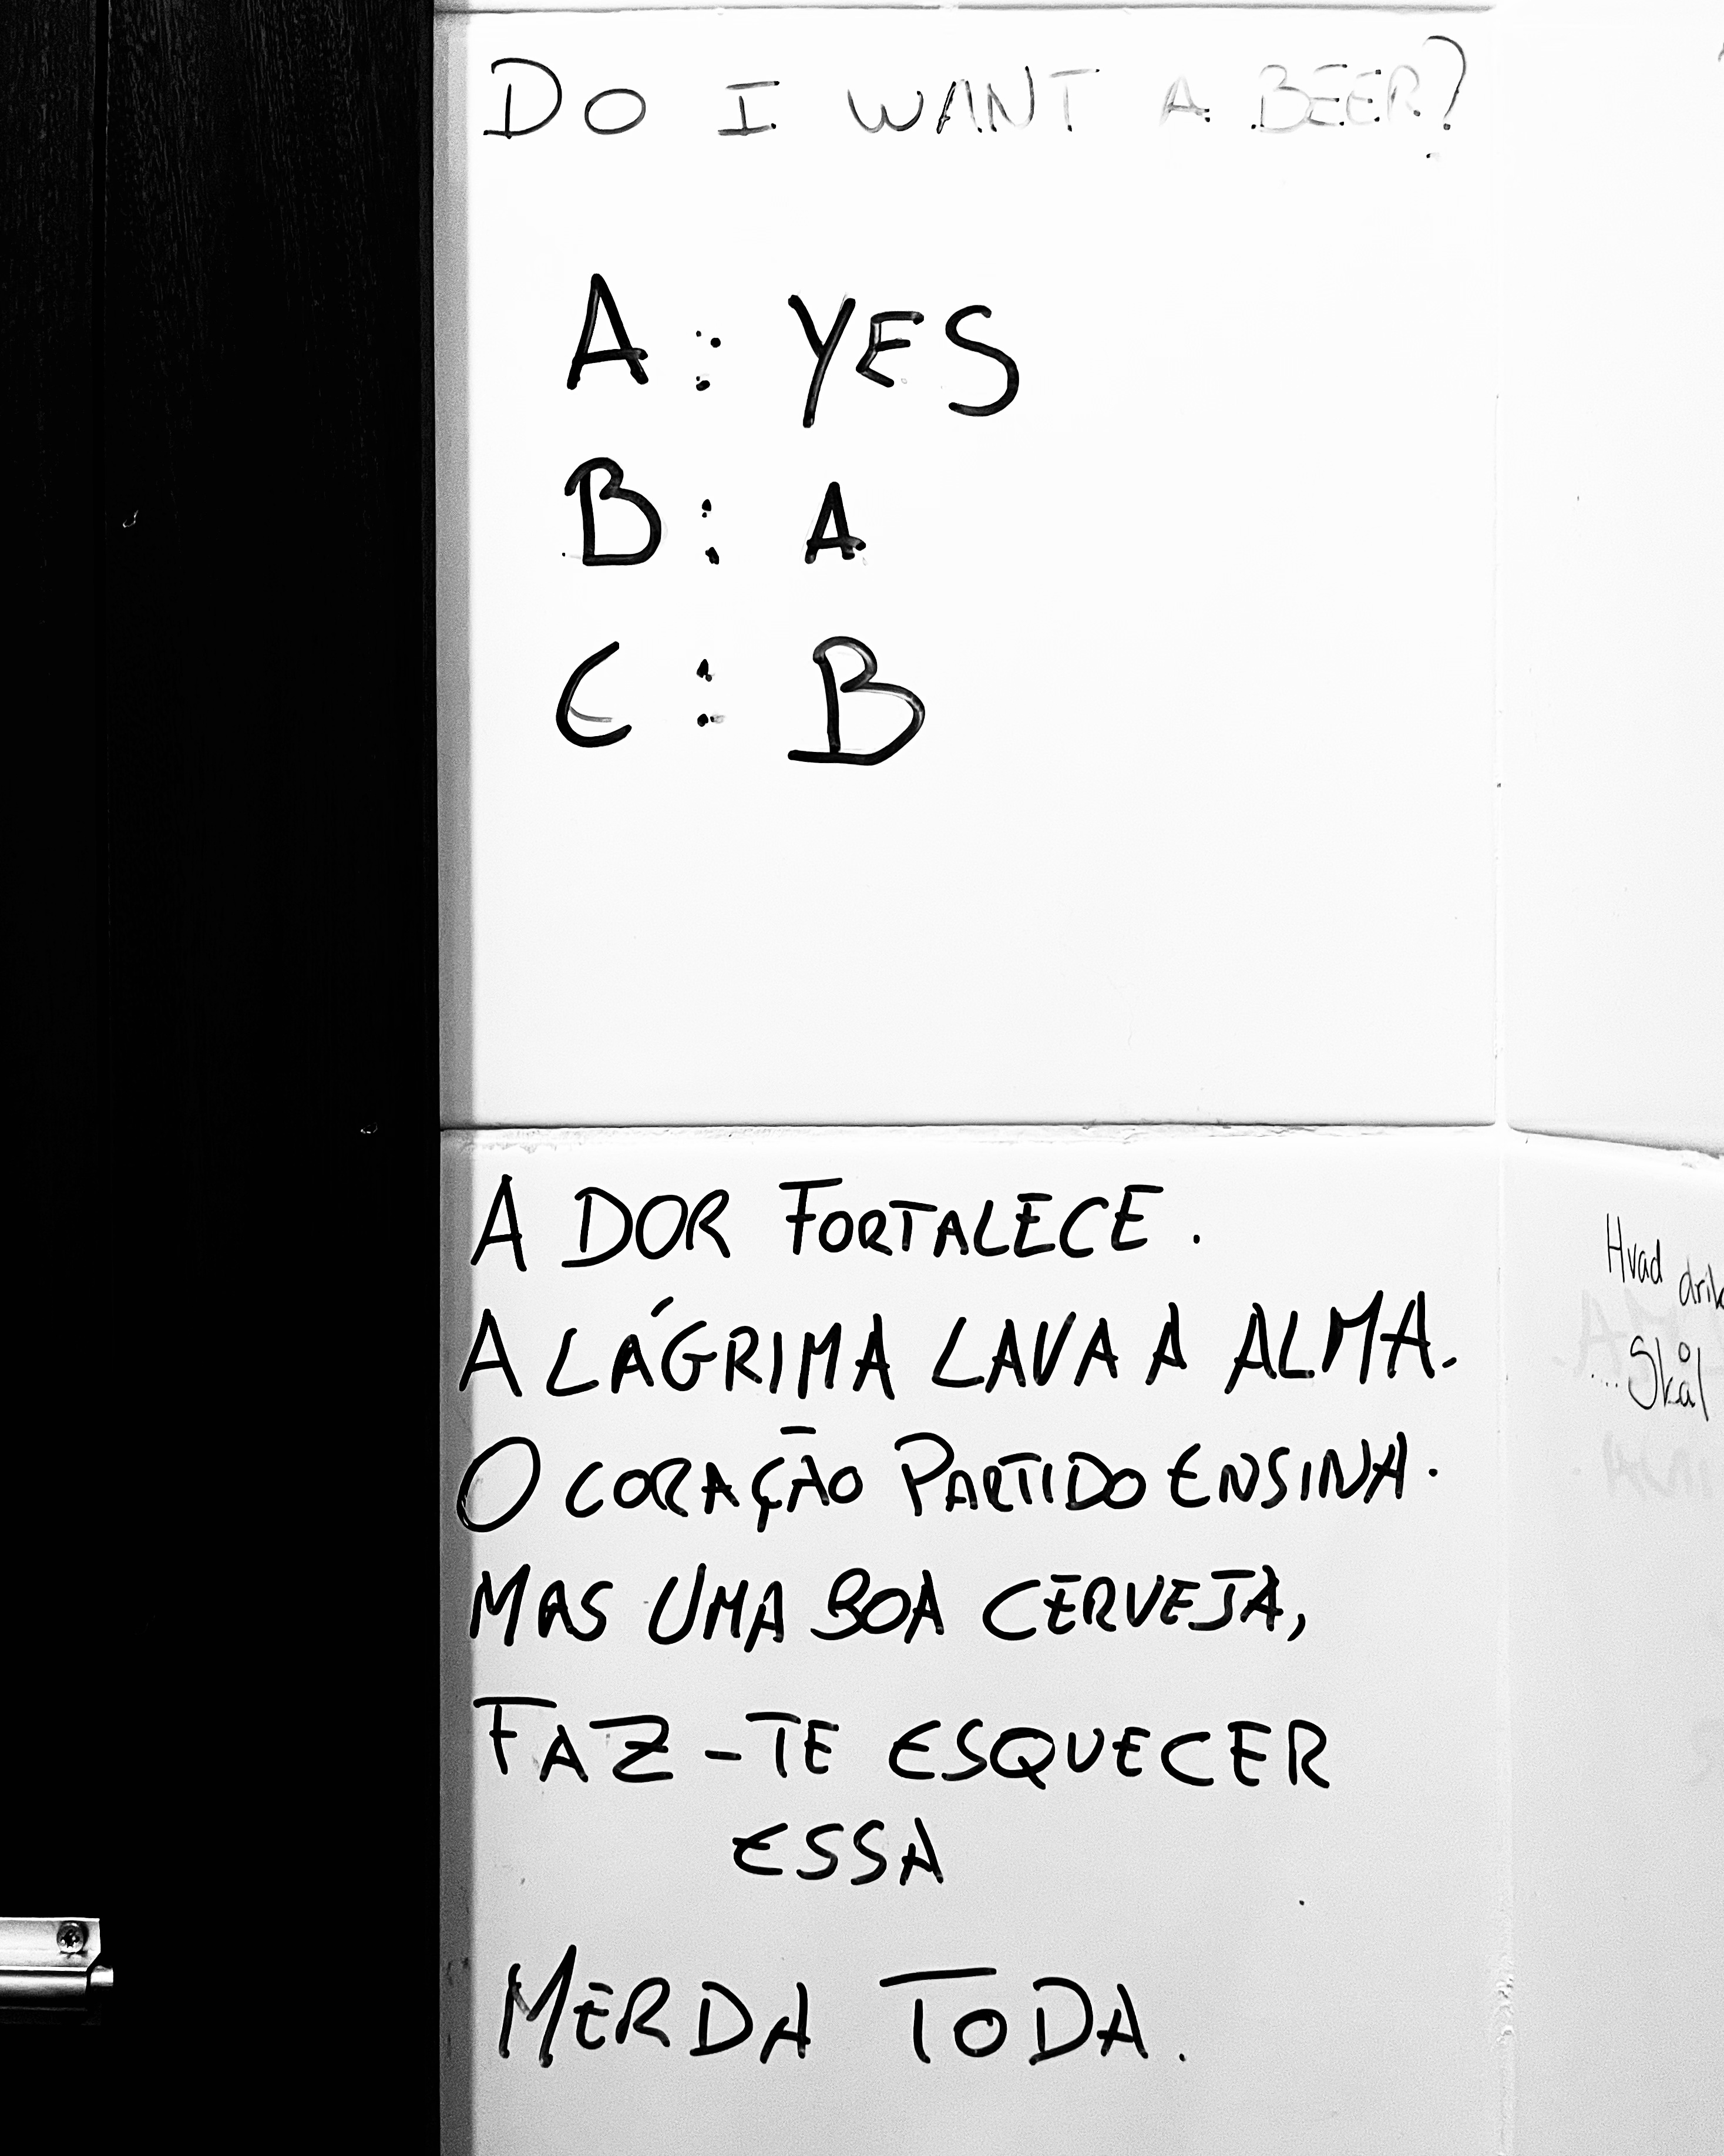 DO I WANT A BEER?
A : YES
B : A
C : B
A DOR FORTALECE.
A LÁGRIMA LAVA A ALMA.
O CORAÇÃO PARTIDO ENSINA.
MAS UMA BOA CERVEJA,
FAZ-TE ESQUECER
ESSA
MERDA TODA.
Hvad
... Skål